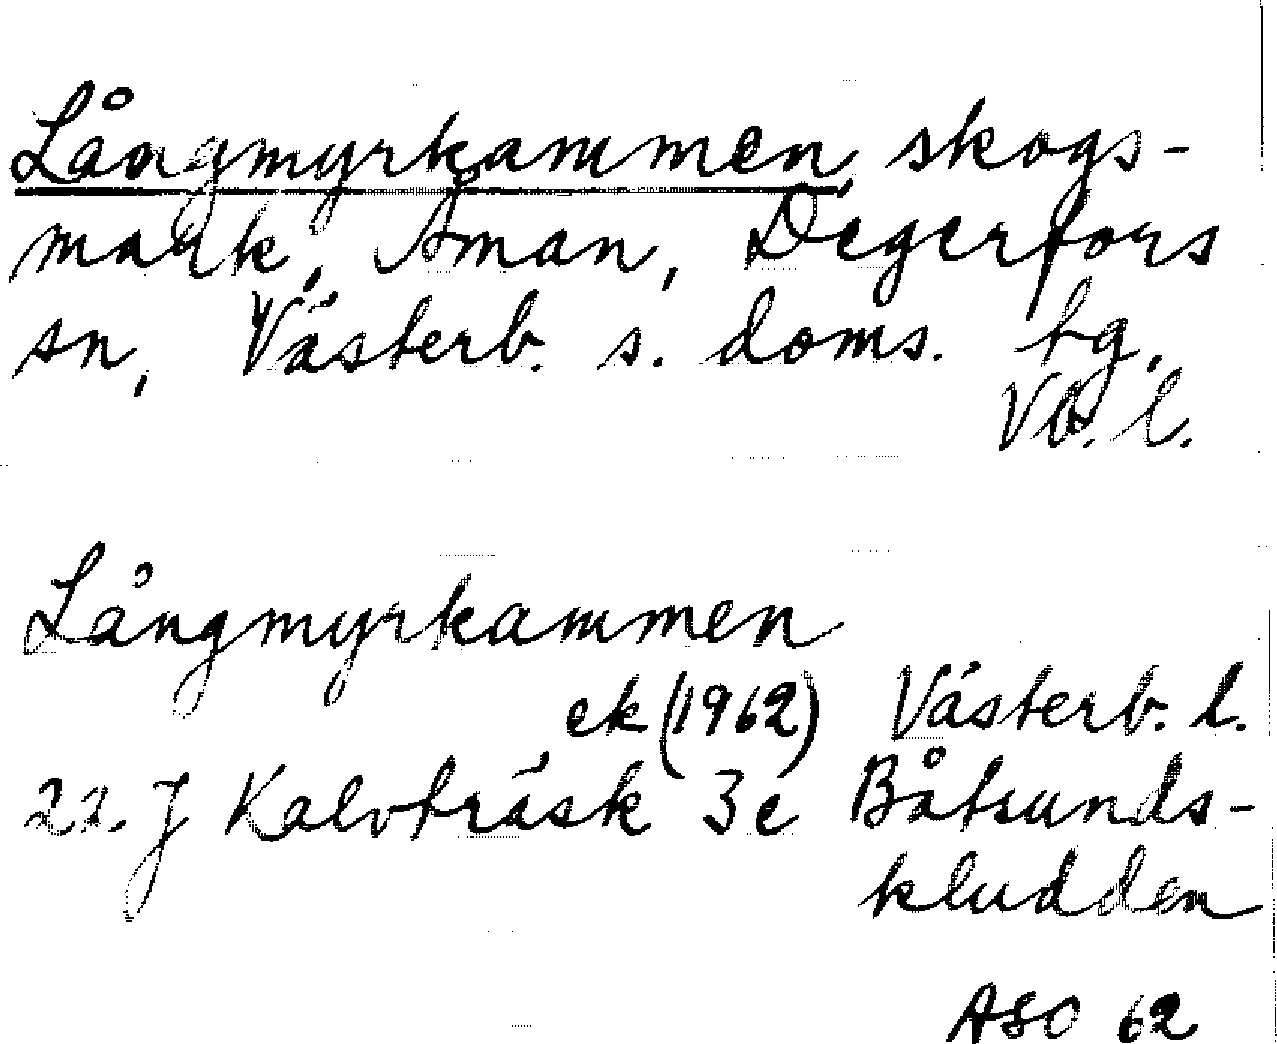 Långmyrkammen, skogs-
mark, Åman, Degerfors
sn, Västerb. s. doms. tg,
Vb. l.
Långmyrkammen
ek (1962) Västerb. l.
22. J Kalvträsk 3e Båtsunds-
kludden
ASO 62